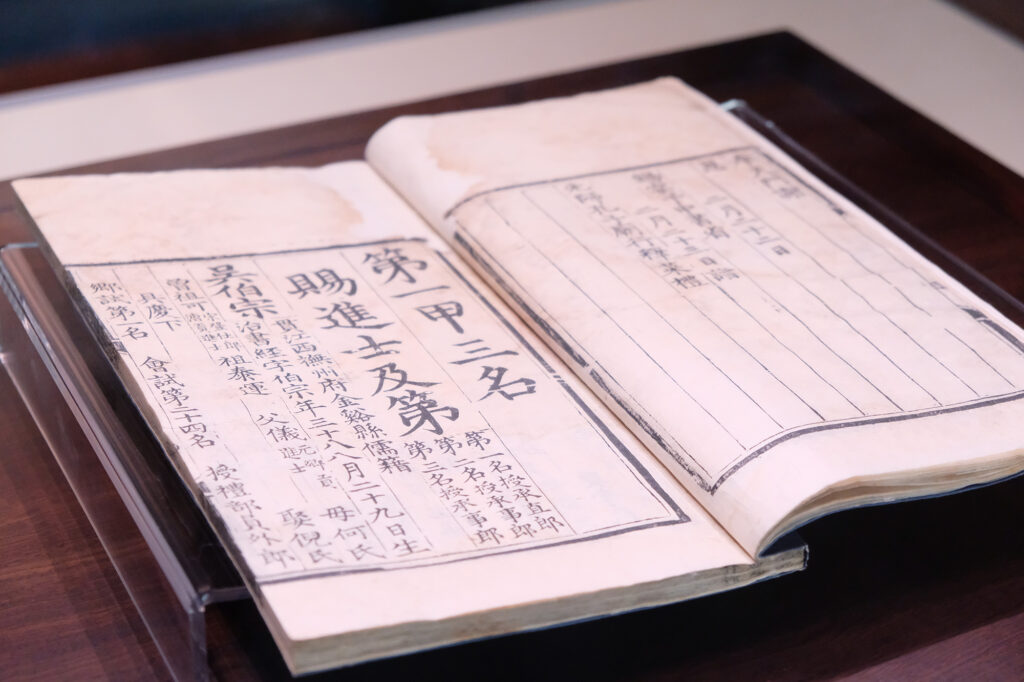 二月二十二日
二月二十三日詣
先師孔子廟行釋菜禮
第一甲三名
第一名授承直郎
第二名授承事郎
第三名授承事郎
賜進士及第
貫江西撫州府金谿縣儒籍
吳伯宗
治書經字伯宗年三十八八月二十九日生
曾祖可 祖泰運 父儀 元鄉貢進士 母何氏
具慶下 娶倪氏
鄉試第一名 會試第二十四名 授禮部員外郎